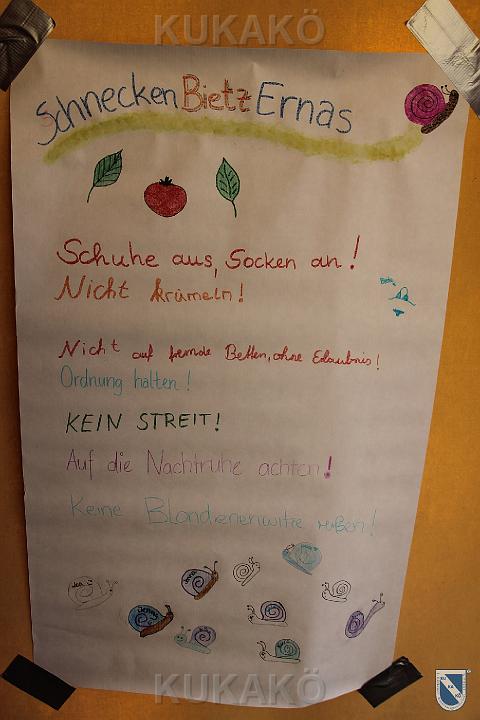 KUKAKÖ
SchneckenBietzErnas
Schuhe aus, Socken an!
Nicht krümeln!
Nicht auf fremde Betten, ohne Erlaubnis!
Ordnung halten!
KEIN STREIT!
Auf die Nachtruhe achten!
Keine Blondienenwitze reißen!
Jenny
KUKAKÖ